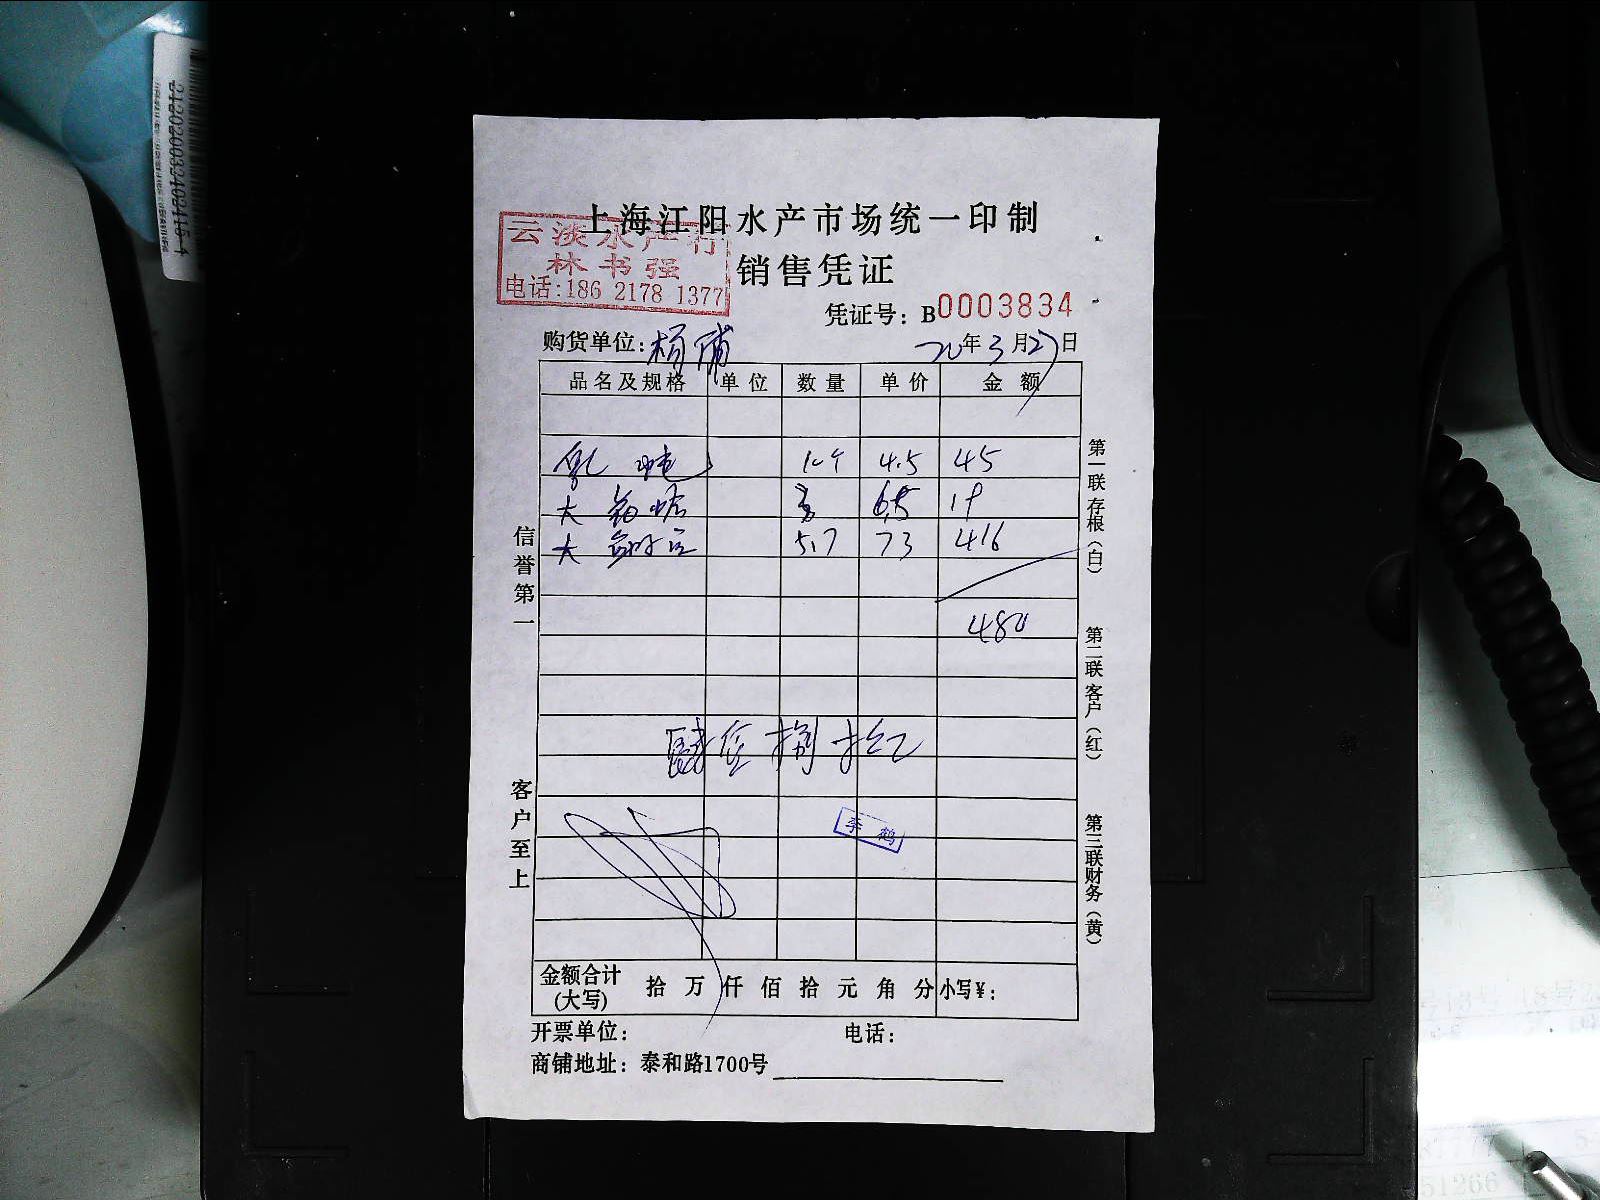 上海江阳水产市场统一印制
云淡水产行
林书强
电话:186 2178 1377
销售凭证
凭证号: B0003834
购货单位: 杨浦
20年3月27日
品名及规格 单位 数量 单价 金额
4.5 45
大 65 19
大 5.7 73 416
480
肆佰捌拾元
李鹤
金额合计(大写) 拾 万 仟 佰 拾 元 角 分 小写¥:
开票单位: 电话:
商铺地址: 泰和路1700号
信誉第一
客户至上
第一联存根(白)
第二联客户(红)
第三联财务(黄)